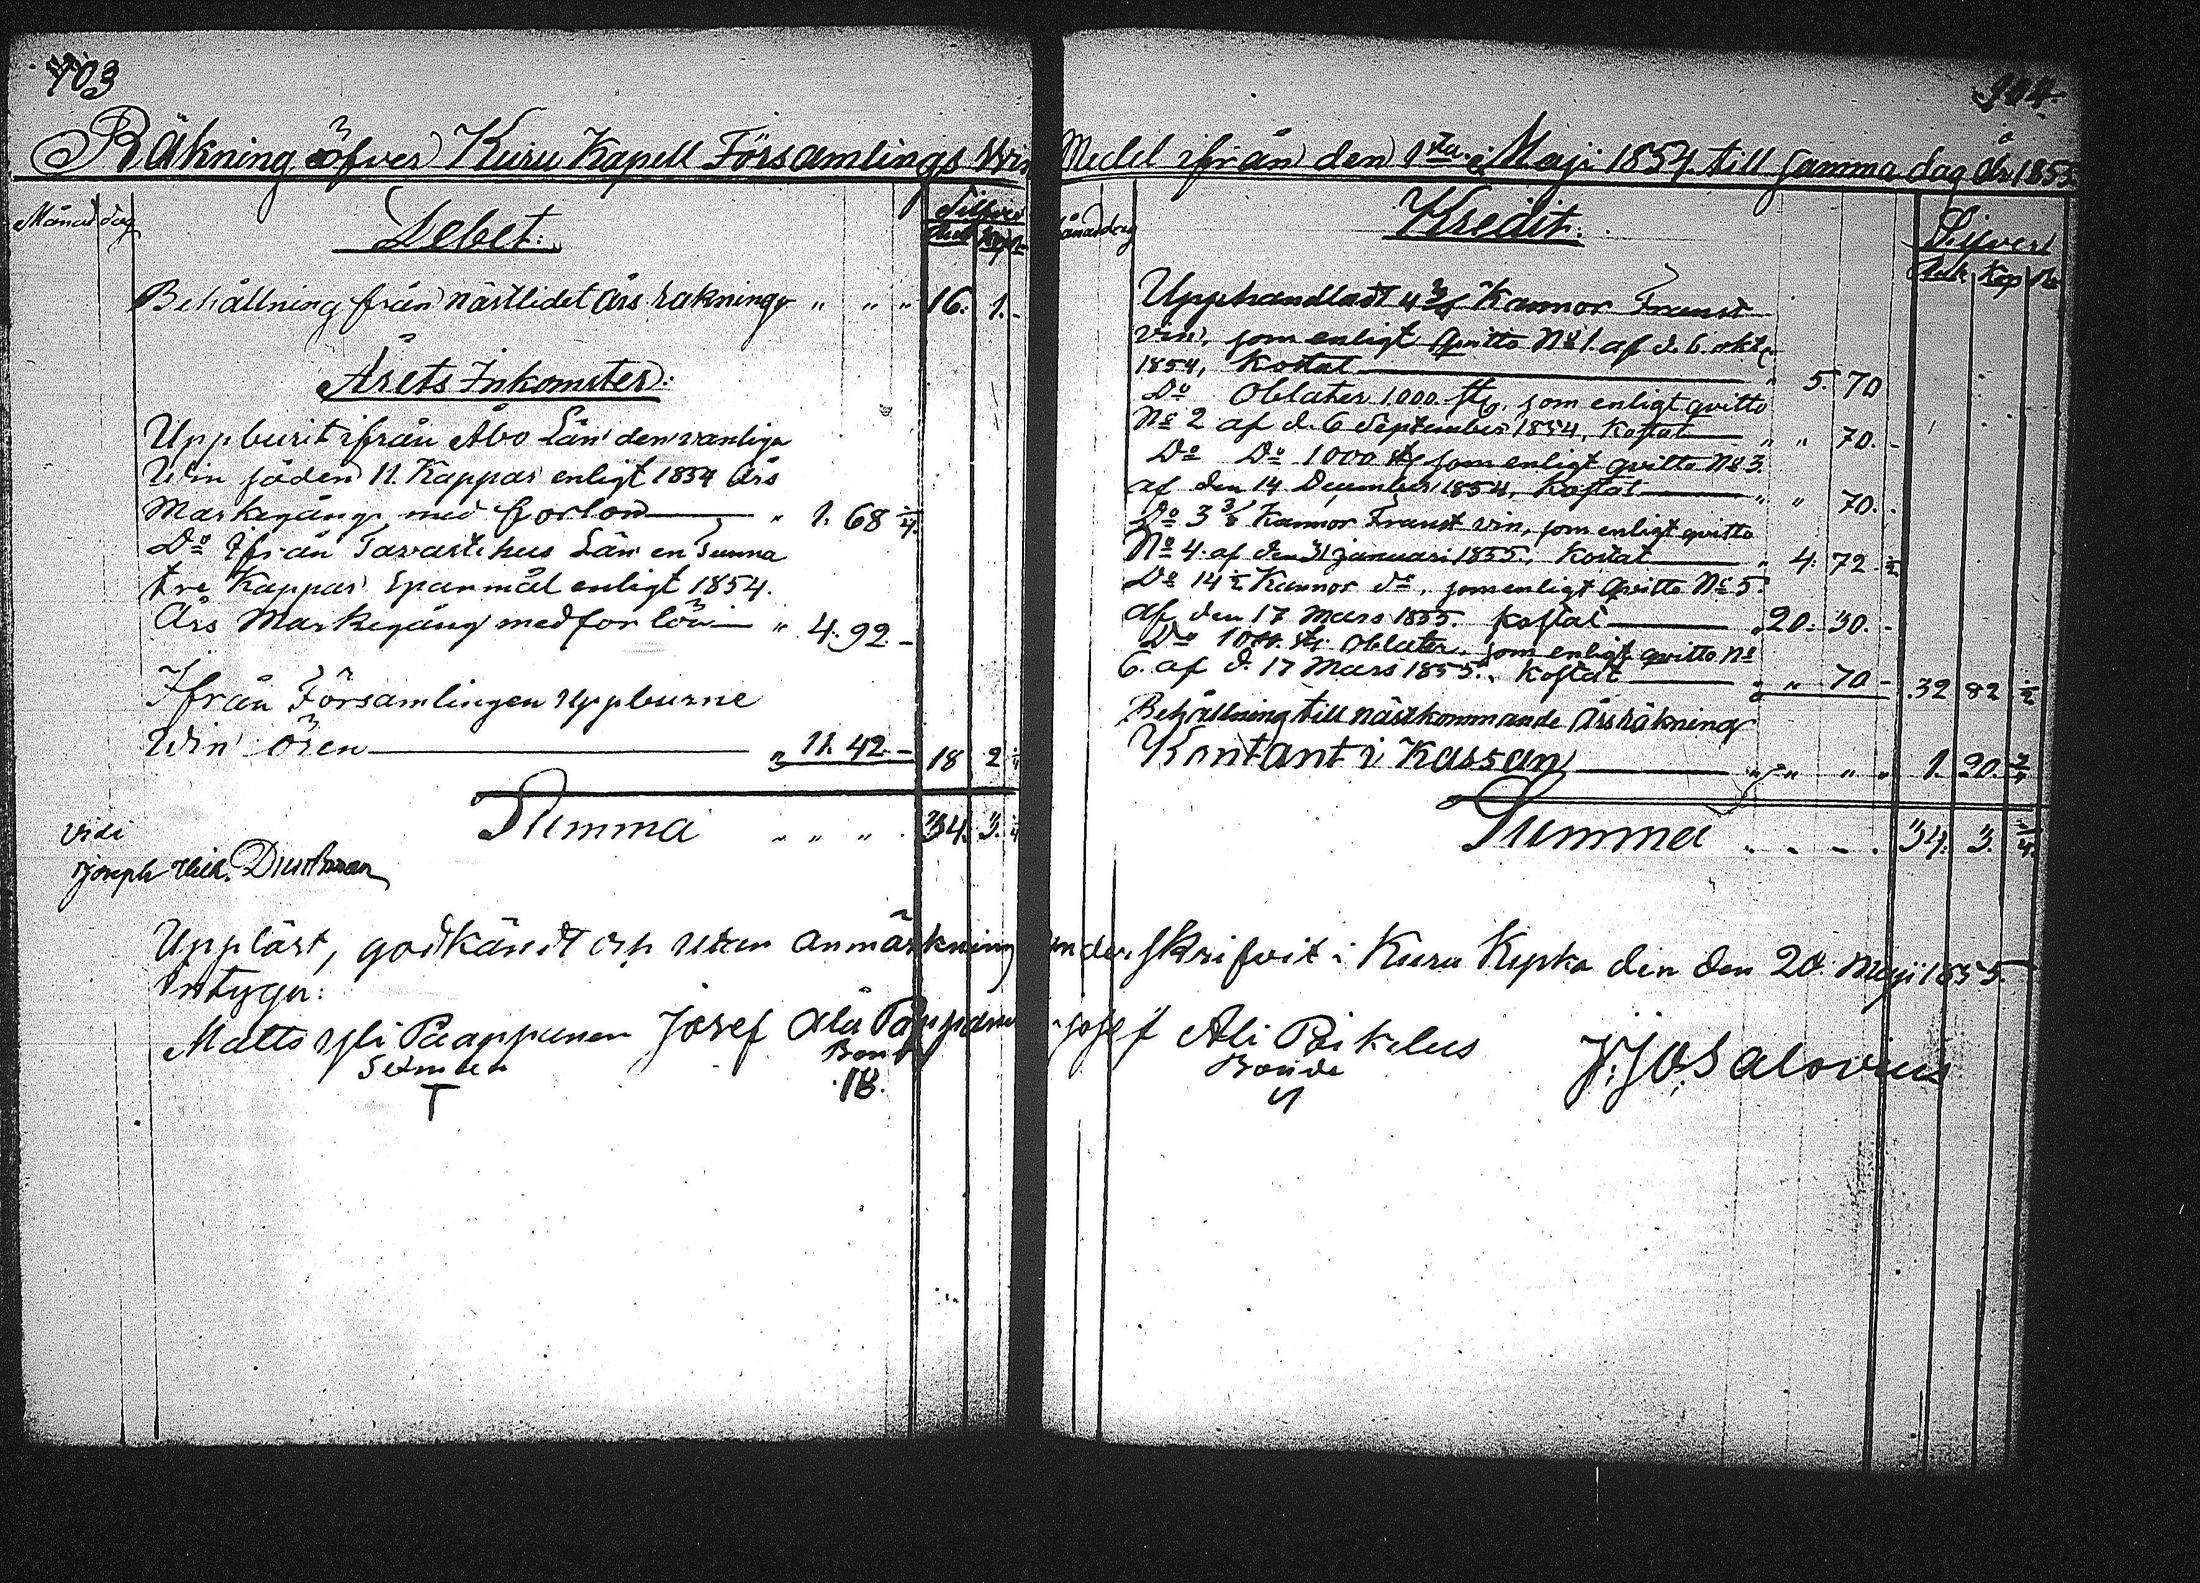 403
Räkning öfver Kuru Kapell Församlings Win
Månad dag
Debet:
Silfver
Rub Kop
Behållning från nästlidet Års räkning " " " 16. 1. -
Årets Inkomster:
Uppburit ifrån Åbo Län den vanliga
Win säden 11. Kappar enligt 1854 Års
Markegång med forlön " 1. 68 1/4.
Do Ifrån Tavastehus Län en Tunna
tre Kappar Spanmål enligt 1854.
Års Markegång med forlön " 4. 92. -
Ifrån Församlingen Uppburne
Win ören 11. 42. - 18 2 1/4
Summa " " " 34. 3. 1/4
Vidi
Joseph
Uppläst, godkändt och utan anmärkning
Intyga:
Matts Yli Pååppanen Josef Ala
Sexman Bonde
T 1B.
404
Medel ifrån den 1sta Maji 1854. till samma dag År 1855
Månad dag
Kredit:
Silfver
Rub Kop
Upphandladt 4 3/4 Kannor Franst
vin, som enligt qvitto No 1. af d. 6. oktr
1854, Kostat " 5. 70
Do Oblater 1000 st, som enligt qvitto
No 2 af d. 6 September 1854, Kostat " " 70. -
Do Do 1000 st som enligt qvitto No 3.
af den 14 December 1854, Kostat " " 70. -
Do 3 3/8 Kannor Franst vin, som enligt qvitto
No 4. af den 31 januari 1855. Kostat " 4. 72. 1/2
Do 14 1/2 Kannor do, som enligt Qvitto No 5.
af den 17 Mars 1855. Kostat 20. 30. -
Do 1000. st. Oblater, som enligt qvitto No
6. af d. 17 Mars 1855. Kostat " " 70 - 32 82 1/2
Behållning till nästkommande Årsräkning
Kontant i Kassan " " " 1. 20. 3/4
Summa 34. 3. 1/4
underskrifvit i Kuru Kyrka den 20. Maji 1855.
Josef Ali
Bonde
Salovius